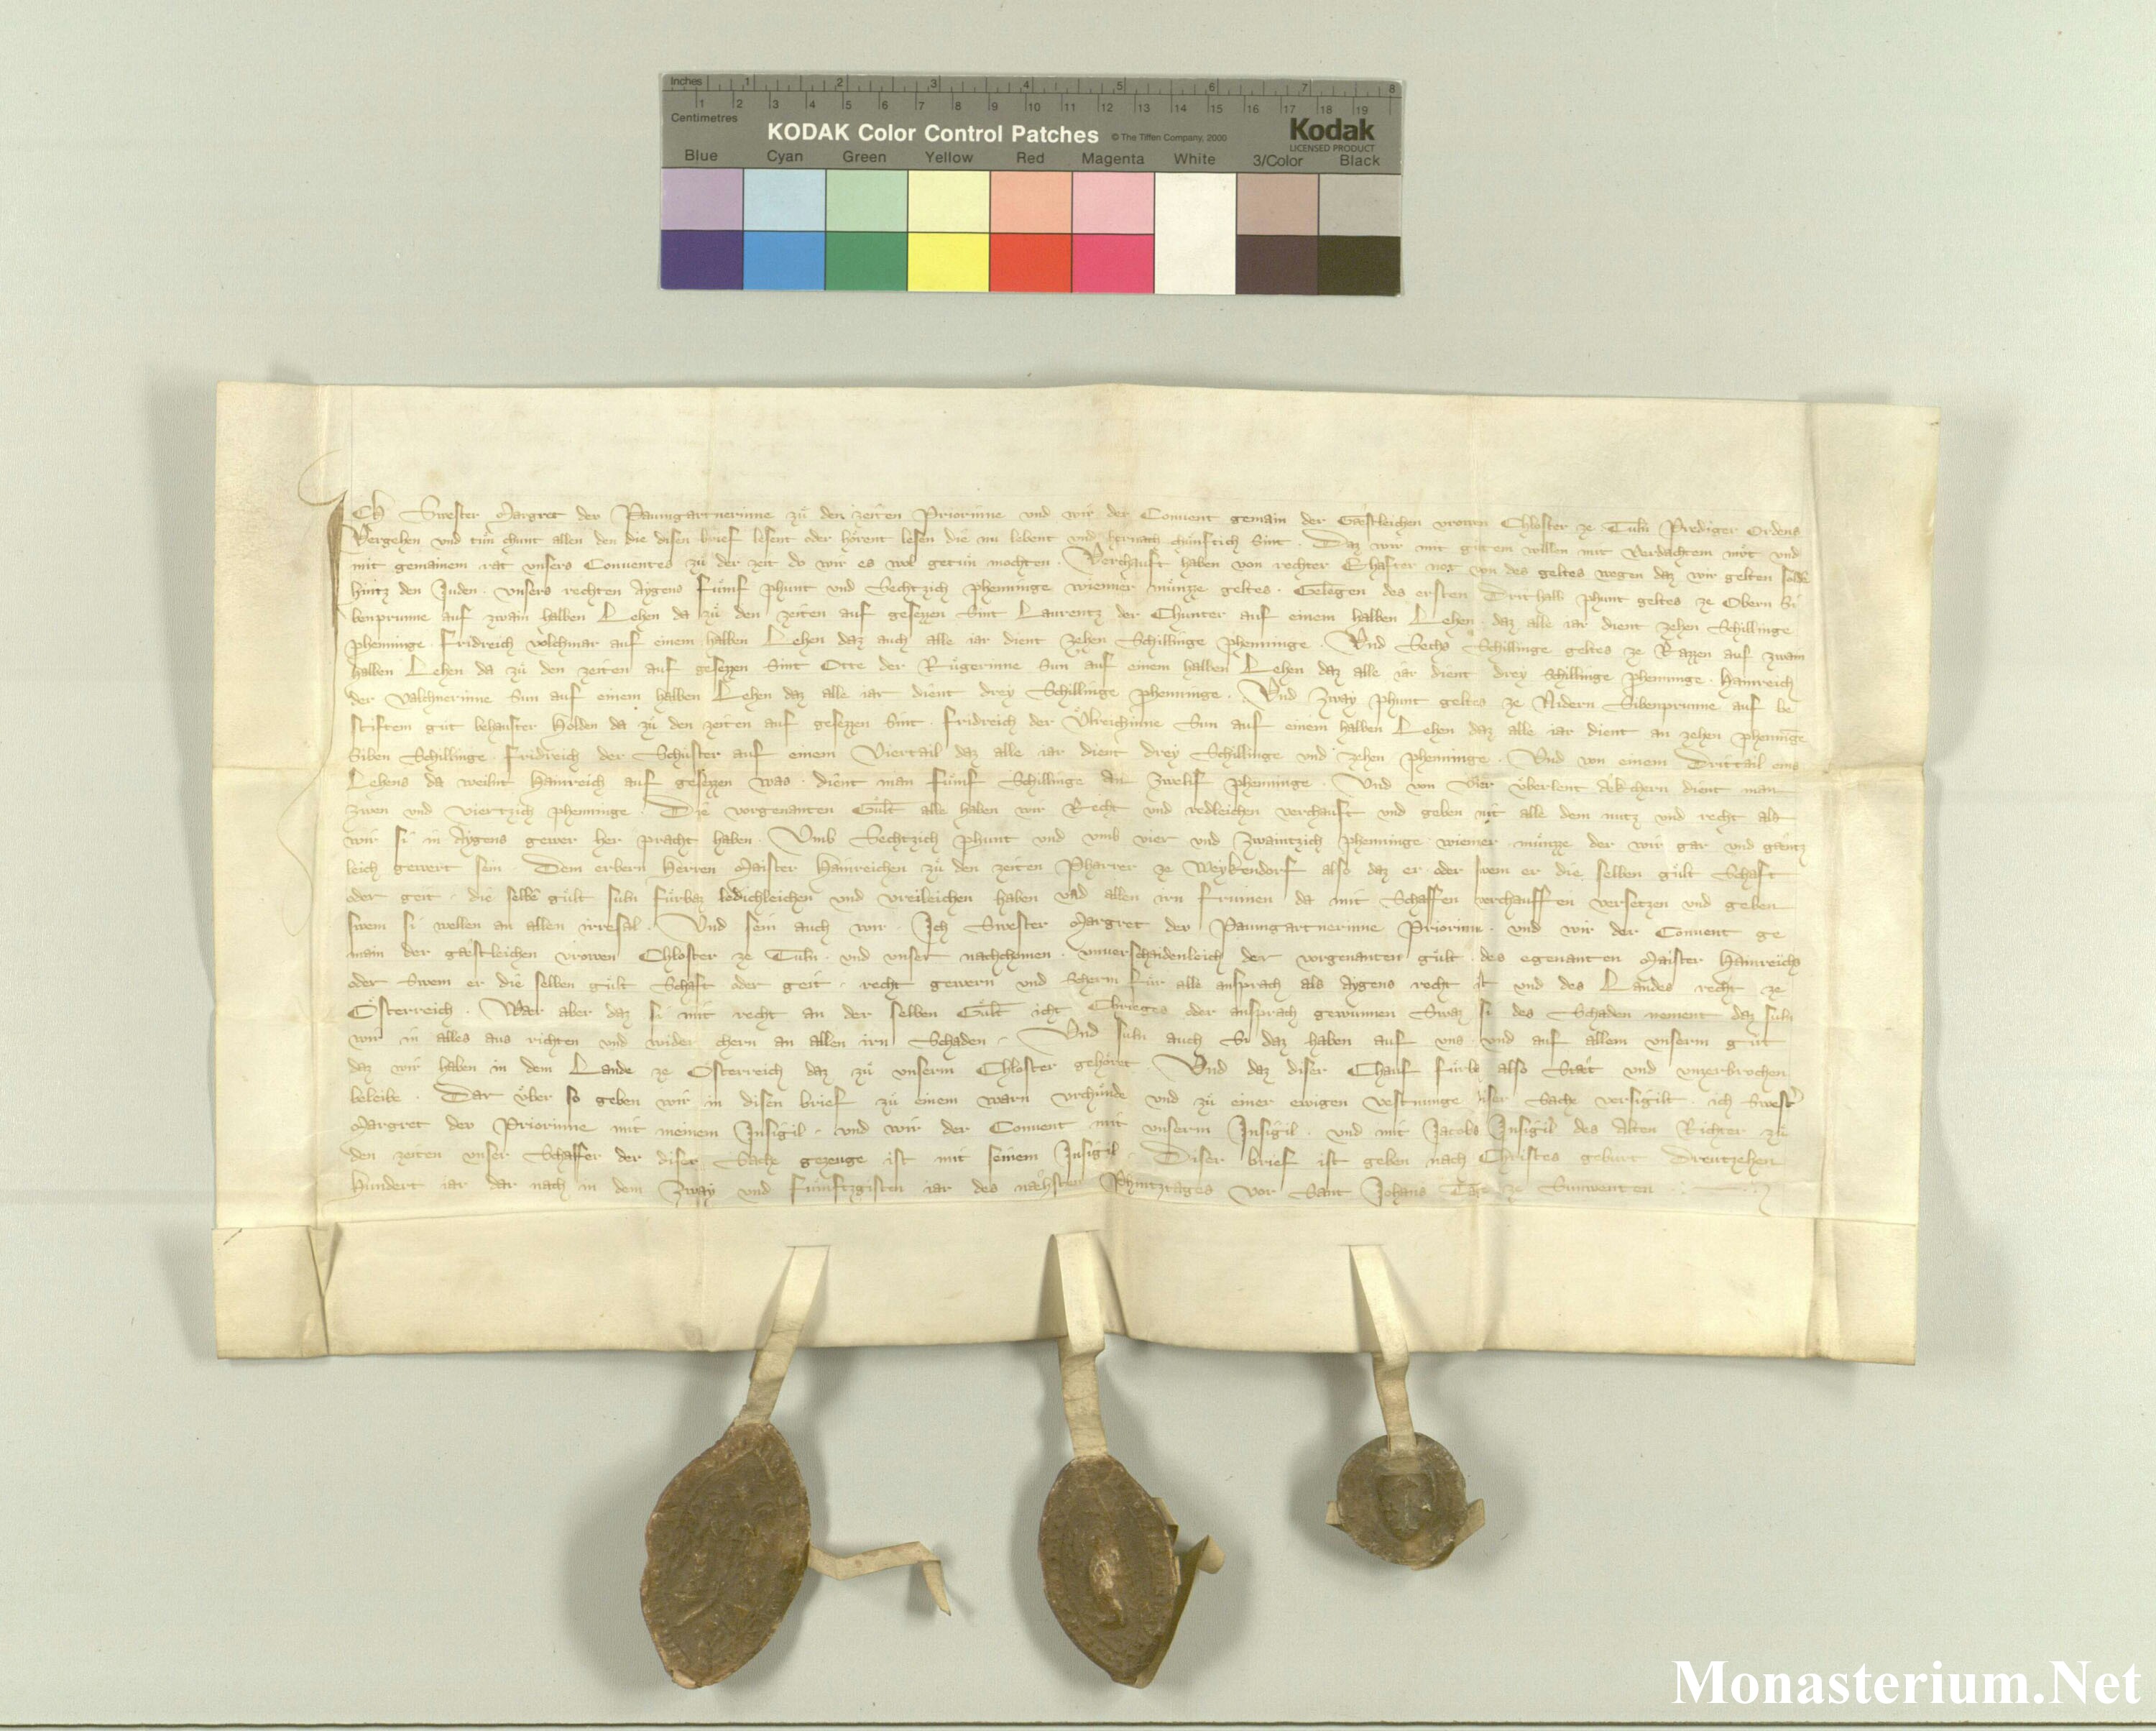 Inches 1 2 3 4 5 6 7 8
1 2 3 4 5 6 7 8 9 10 11 12 13 14 15 16 17 18 19
Centimetres
KODAK Color Control Patches © The Tiffen Company, 2000 Kodak
LICENSED PRODUCT
Blue Cyan Green Yellow Red Magenta White 3/Color Black
ICh Swester Margret der Paumgartnerinne zů den zeiten Priorinne vnd wir der Conuent gemain der Gaestleichen vrowen Chloster ze Tuln Prediger Ordens
Vergehen vnd tůn chunt allen den die disen brief lesent oder hörent lesen die nu lebent vnd hernach chunftich sint . Daz wir mit gůtem willen mit verdachtem můt vnd
mit gemainem rat vnsers Conuentes zů der zeit do wir es wol getůn mochten . Verchauft haben von rechter Ehafter not von des geltes wegen daz wir gelten solden
hintz den Juden . vnsers rechten Aygens fůnf phunt vnd Sechtzich phenninge wienner můnzze geltes . Gelegen des ersten Drithalb phunt geltes ze Obern Si
benprunne auf zwain halben Lehen da zů den zeiten auf gesezzen sint Laurentz der Chunter auf einem halben Lehen daz alle iar dient zehen Schillinge
phenninge . Fridreich volchmar auf einem halben Lehen daz auch alle iar dient zehen Schillinge phenninge . Vnd Sechs Schillinge geltes ze Razzen auf zwain
halben Lehen da zů den zeiten auf gesezzen sint Otte der Růgerinne sun auf einem halben Lehen daz alle iar dient drey Schillinge phenninge . Hainreich
der Valchnerinne Sun auf einem halben Lehen daz alle iar dient drey Schillinge phenninge . Vnd Zway phunt geltes ze Nidern Sibenprunne auf be
stiftem gůt behauster Holden da zů den zeiten auf gesezzen sint . fridreich der Vlreichinne Sun auf einem halben Lehen daz alle iar dient an zehen phenninge
Siben Schillinge . Fridreich der Schuster auf einem Viertail daz alle iar dient drey Schillinge vnd zehen phenninge . Vnd von einem Drittail eins
Lehens da weilnt Hainreich auf gesezzen was . dient man fůnf Schillinge an zwelif phenninge . Vnd von vier vberlent Aekchern dient man
zwen vnd viertzich phenninge . Die vorgenanten Gůlt alle haben wir Recht vnd redleichen verchauft vnd geben mit alle dem nutz vnd recht als
wir si in Aygens gewer her pracht haben . Vmb Sechtzich phunt vnd vmb vier vnd Zwaintzich phenninge wienner můnzze der wir gar vnd gaentz
leich gewert sein . Dem erbern Herren Maister Hainreichen zů den zeiten Pharrer ze Weykendorf also daz er oder swem er die selben gůlt Schaft
oder geit . die selbe gůlt suln fůrbaz ledichleichen vnd vreileichen haben vnd allen irn frumen da mit Schaffen verchauffen versetzen vnd geben
swem si wellen an allen irresal . Vnd sein auch wir . Ich Swester Margret der Paumgartnerinne Priorinne . vnd wir der Conuent ge
main der gaestleichen vrowen Chloster ze Tuln . vnd vnser nachchomen . vnuerschaidenleich der vorgenanten gůlt . des egenanten Maister Hainreichs
oder Swem er die selben gůlt Schaft oder geit . recht gewern vnd Scherm fůr alle ansprach als Aygens recht ist vnd des Landes recht ze
Österreich . Waer aber daz si mit recht an der selben Gůlt icht Chrieges oder ansprach gewunnen Swaz si des Schaden nement daz suln
wir in alles aus richten vnd wider chern an allen irn Schaden . Vnd suln auch Si daz haben auf vns vnd auf allem vnserm gůt
daz wir haben in dem Lande ze Österreich daz zů vnserm Chloster gehöret . Vnd daz diser Chauf fůrbaz also Staet vnd vnzerbrochen
beleibe . Dar vber so geben wir in disen brief zů einem warn vrchunde vnd zů einer ewigen vestnunge diser Sache versigilt . ich Swester
Margret der Priorinne mit meinem Insigil . vnd wir der Conuent mit vnserm Insigil . vnd mit Jacobs Insigil des Alten Richter zů
den zeiten vnser Schaffer der diser Sache gezeuge ist mit seinem Insigil . Diser brief ist geben nach Christes geburt Dreutzehen
Hundert iar dar nach in dem Zway vnd fůnftzgisten iar des nachsten Phintztages vor Sant Johans Tage ze Sunwenten
Monasterium.Net